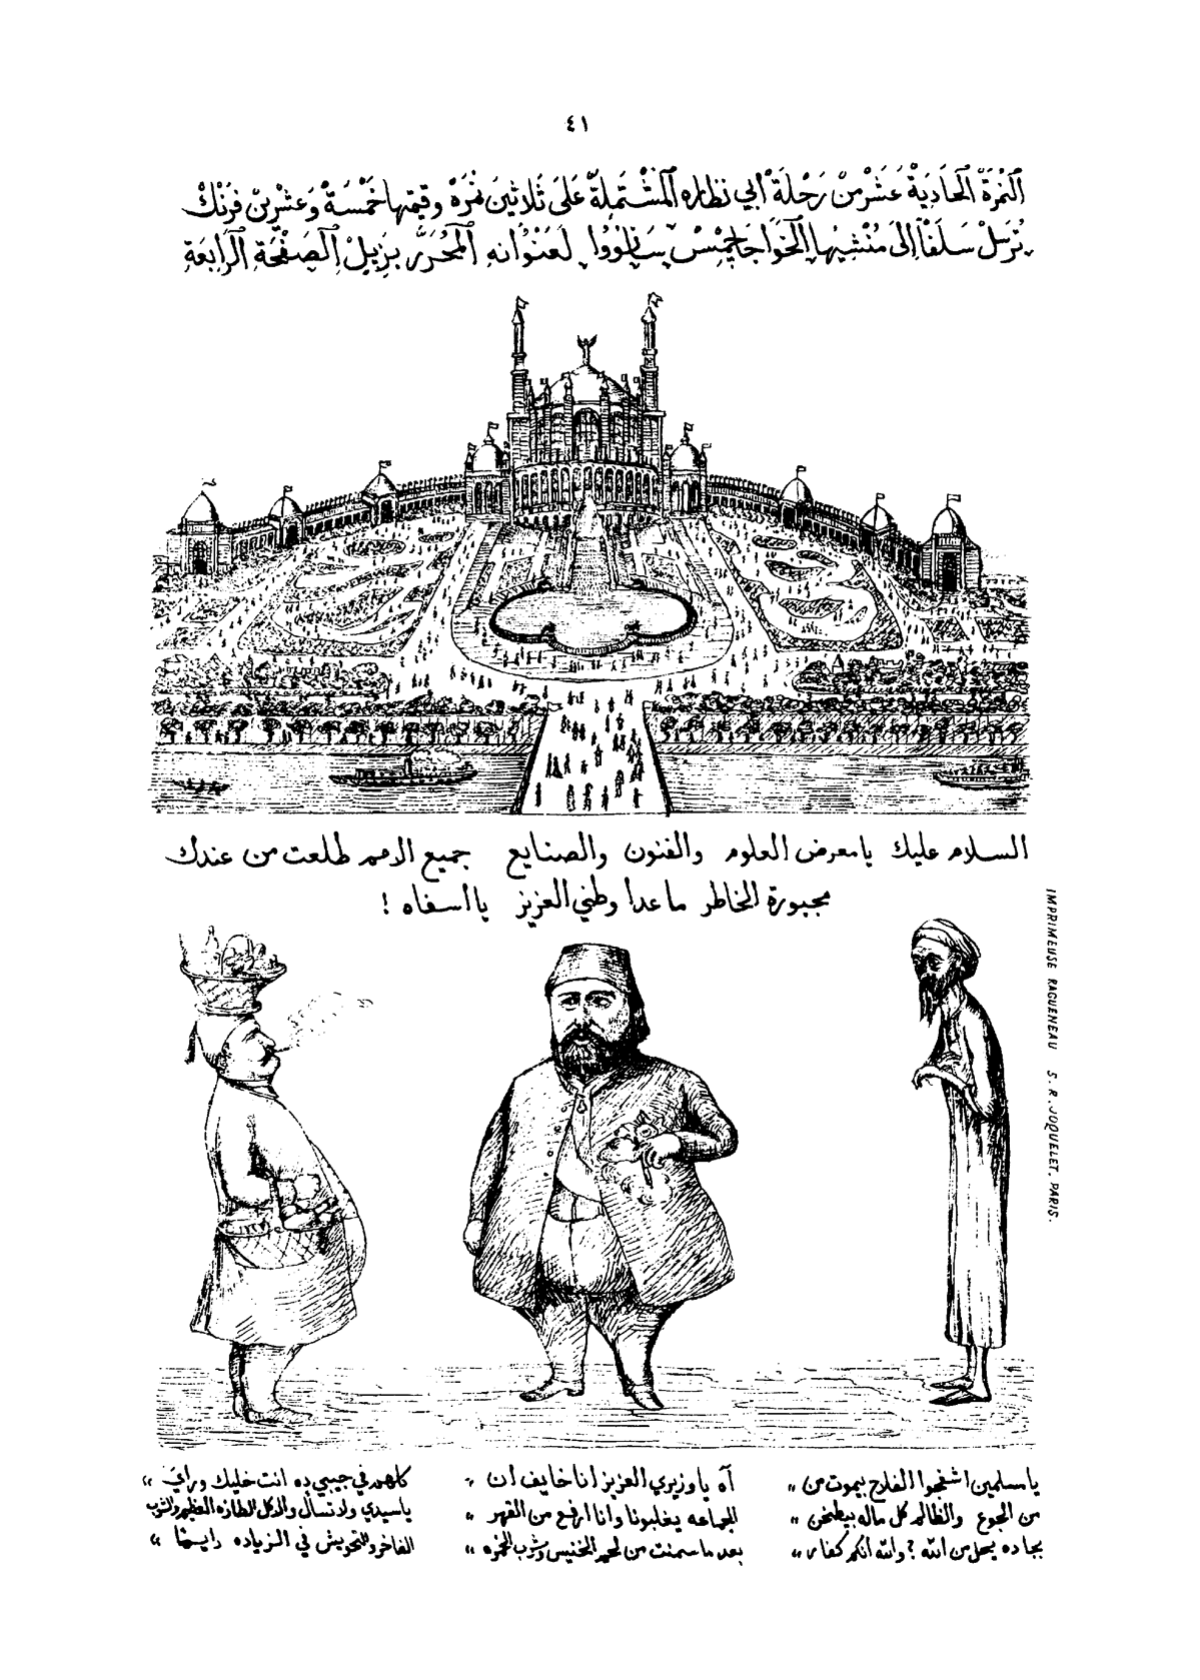 ٤١
اَلنُّمْرَةْ اَلْحَادِيَةْ عَشَرْ مِنْ رَحْلَةْ أَبِي نَظَّارَه اَلْمُشْتَمِلَةْ عَلَى ثَلَاثِينَ نُمْرَهْ وقيمتها خَمْسَةْ وَعِشْرِينْ فِرَنْكْ
تُرْسَلْ سَلَفًا إِلَى مُنْشِيهَا اَلْخَوَاجَا جِمْسْ سَانُووا لَعُنْوَانه اَلْمُحَرَّرْ بِزَيْلْ اَلصَّفْحَةْ اَلرَّابِعَةْ
السلام عليك يا معرض العلوم والفنون والصنايع جميع الامم طلعت من عندك
مجبورة الخاطر ما عدا وطني العزيز يا أسفاه !
IMPRIMEUSE RAGUENEAU S. R. JOQUELET, PARIS.
يا مسلمين اشفقوا الفلاح بيموت من "
من الجوع والظالم كل ماله بيطخن "
بجا ده يحل من الله ؟ والله انكم كفار "
آه يا وزيري العزيز انا خايف ان "
الجماعه يغلبونا وانا ارفع من القهر "
بعد ما سمنت من لحم الخنيص وشرب الخمره "
كلهم في جيبي ده انت خليك وراي "
يا سيدي ولا تسأل والاكل الطازه العظيم والشرب
الفاخر والتحويش في الزياده دايمًا "